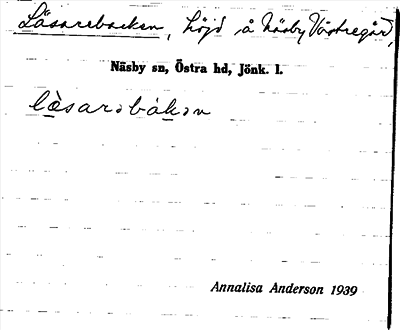 Läsarebacken, höjd å Näsby Västregård,
Näsby sn, Östra hd, Jönk. l.
lèsarɔbákɔn
Annalisa Anderson 1939